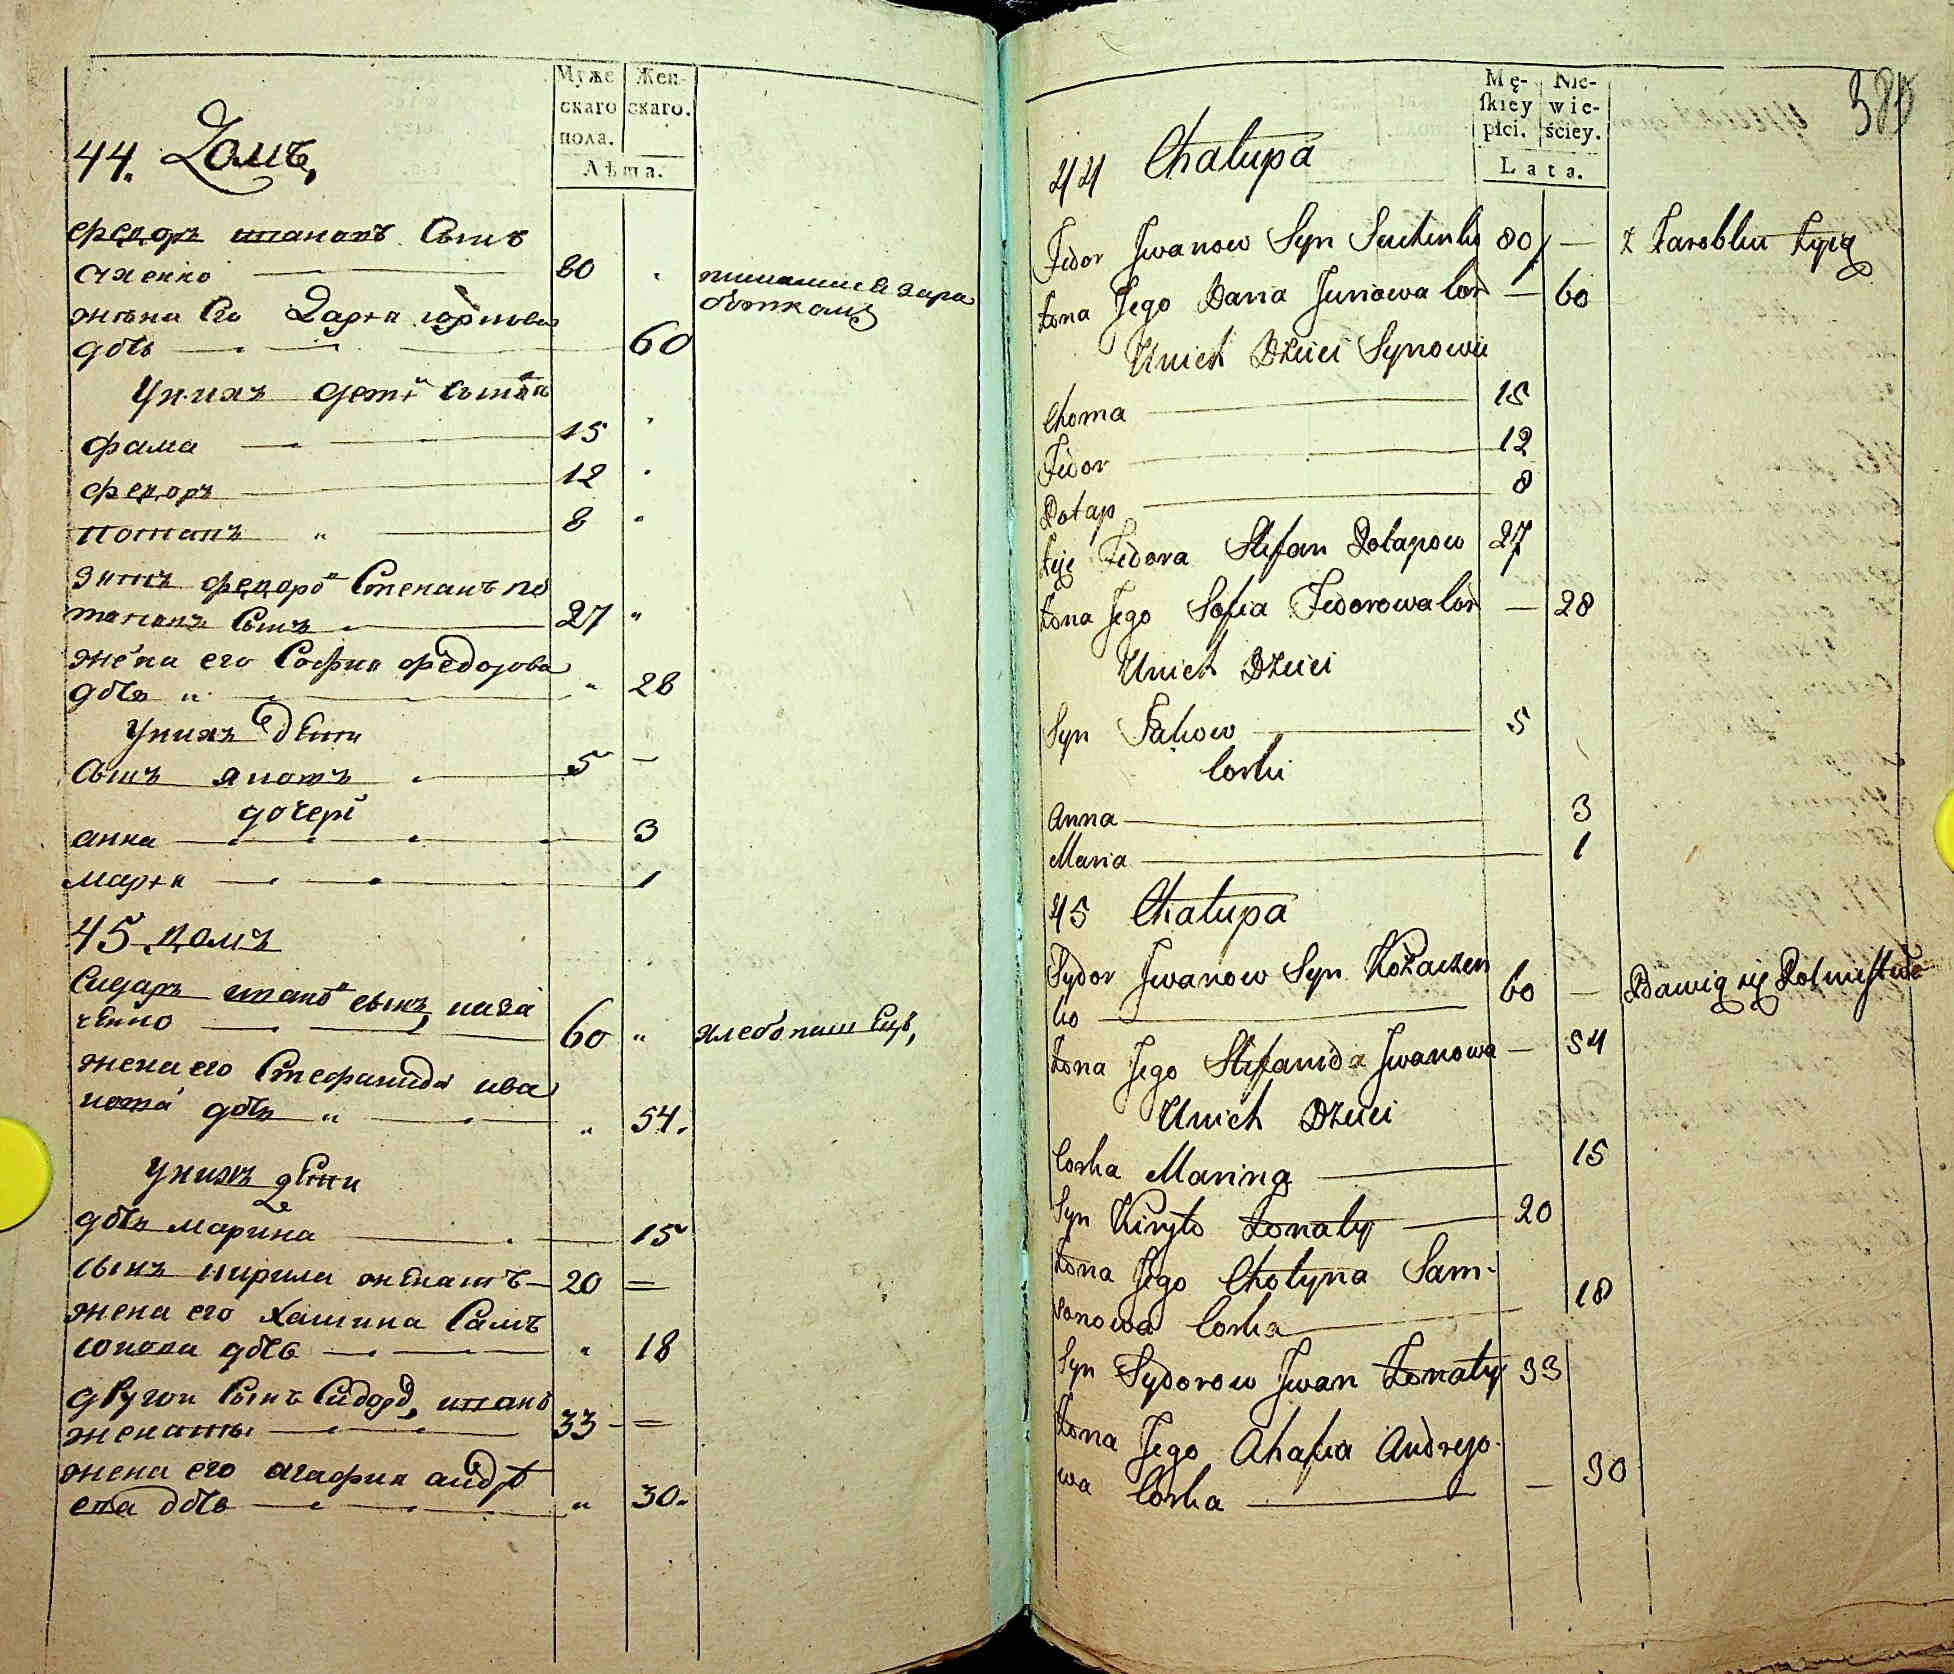 Муже
скаго
пола.
Жен-
скаго.
Лѣта.
44. Домъ,
Федоръ ивановъ Сынъ
80
жена Его Дария юриева
дочь
60
Унихъ дети Сыновя
фама 15
федоръ 12
потапъ 8
зять федоров Степанъ по
тапавъ Сынъ 27
жена его София федорова
дочь 28
Унихъ дети
Сынъ яковъ 5
дочери
анна 3
мария 1
45 домъ
Сидаръ ивано сынъ каза
ченко 60 хлебопашецъ,
жена его Стефанида ива
нова дочь 54.
Унихъ дети
дочь марина 15
сынъ кирила женатъ 20
жена его Самъ
сонова дочь 18
другои Сынъ Сидоро, иванъ
женатъ 33
жена его агафия андр
еева дочь 30.
380
Mę-
ſkiey
płci.
Nie-
wie-
ściey.
Lata.
44 Chałupa
Fedor Jwanow Syn Suchenko 80 — z Zarobku żyją
Żona Jego Daria Juriowa Cor — 60
Unich Dzieci Synowie
Choma 15
Fedor 12
Potap 8
Zięć Fedora Stefan Potapow 27
Żona Jego Sofia Fedorowa Cor — 28
Unich Dzieci
Syn Jakow 5
Corki
Anna 3
Maria 1
45 Chałupa
Sydor Jwanow Syn Kozaczen
ko 60 — Bawią się Rolnictwem
Żona Jego Stefanida Jwanowa — 54
Unich Dzieci
Corka Marina 15
Syn Kiryło Żonaty 20
Żona Jego Chotyna Sam-
sonowa Corka 18
Syn Sydorow Jwan Żonaty 33
Żona Jego Ahafia Andrejo-
wa Corka — 30